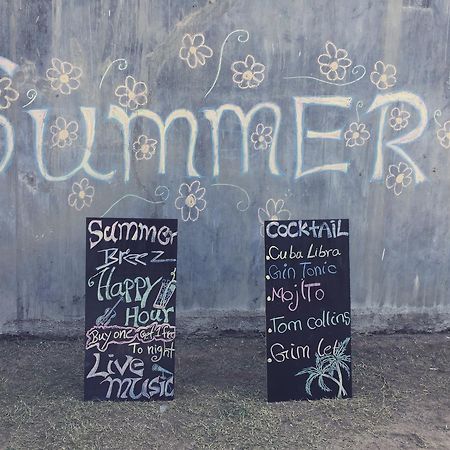 SummER
Summer
BReeZ
Happy
Hour
Buy one Get 1 free
To night
Live
music
COCKTAiL
Cuba Libra
Gin Tonic
MojiTo
Tom Collins
Gim let